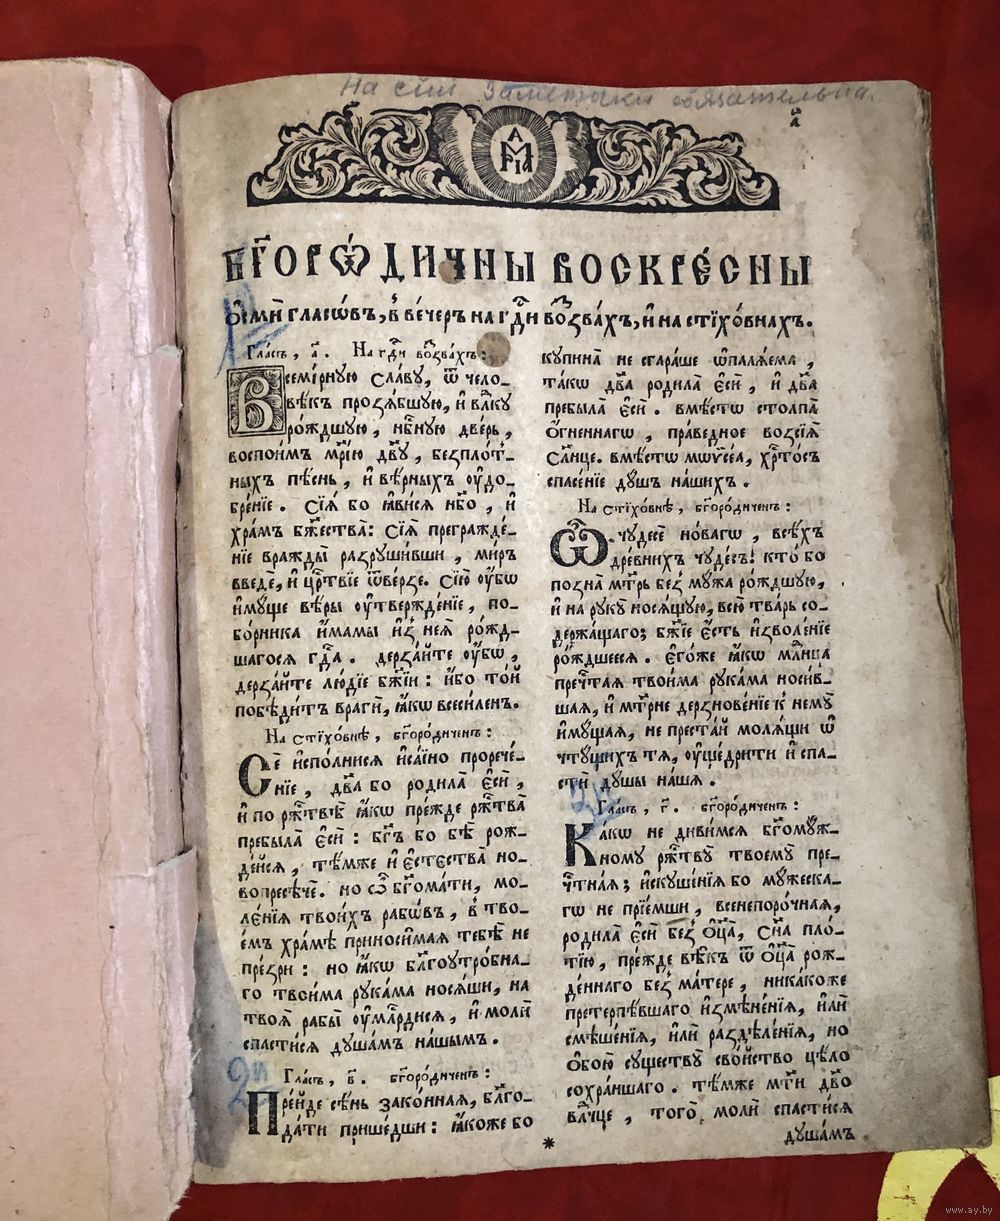 На сии заметки обязательна.
а҃
АМРІ
БГ҃ОРѠ́ДИЧНЫ ВОСКРЕ́СНЫ
ѻ҆сми́ гласѡ́въ, в̾ ве́черъ на гд҇и воз̾ва́хъ, и҆ на стїхо́внахъ.
Гла́съ, а҃. На гд҇и воз̾ва́хъ:
Всемі́рную сла́ву, ѿ чело-
вѣ́къ прозѧ́бшую, и҆ влⷣку
ро́ждшую, нбⷭ҇ную две́рь,
воспои́мъ мр҃і́ю дв҃у, безпло́т-
ныхъ пѣ́снь, и҆ вѣ́рныхъ ᲂу҆до-
бре́нїе. Сїѧ́ бо ꙗ҆ви́сѧ нб҃о, и҆
хра́мъ бжⷭ҇тва̀: Сїѧ̀ прегражде́-
нїе вражды̀ разруши́вши, ми́ръ
введѐ, и҆ црⷭ҇твїе ѿве́рзе. Сїю̀ ᲂу҆́бѡ
и҆му́ще вѣ́ры ᲂу҆твержде́нїе, по-
бо́рника и҆́мамы и҆з̾ неѧ̀ ро́жд-
шагосѧ гдⷭ҇а. дерза́йте ᲂу҆́бѡ,
дерза́йте лю́дїе бж҃їи: и҆́бо то́й
побѣди́тъ врагѝ, ꙗ҆́кѡ всеси́ленъ.
На стїхо́внѣ, бг҃оро́диченъ:
Сѐ и҆спо́лнисѧ и҆са́їино прорече́-
нїе, дв҃а бо родила̀ є҆сѝ,
и҆ по ржⷭ҇твѣ̀ ꙗ҆́кѡ пре́жде ржⷭ҇тва̀
пребыла̀ є҆сѝ: бг҃ъ бо бѣ̀ рож-
де́йсѧ, тѣ́мже и҆ є҆стества̀ но-
вопресѣчѐ. но ѽ бг҃ома́ти, мо-
ле́нїѧ твои́хъ рабѡ́въ, в̾ тво-
е́мъ хра́мѣ приноси́маѧ тебѣ̀ не
пре́зри: но ꙗ҆́кѡ бл҃гоутро́бна-
го твои́ма рука́ма носѧ́щи, на
твоѧ̑ рабы̑ ᲂу҆млⷭ҇рдисѧ, и҆ молѝ
спасти́сѧ душа́мъ на́шымъ.
Гла́съ, в҃. бг҃оро́диченъ:
Пре́йде сѣ́нь зако́ннаѧ, бл҃го-
да́ти прише́дши: ꙗ҆́коже бо
купина̀ не сгара́ше ѡ҆палѧ́ема,
та́кѡ дв҃а родила̀ є҆сѝ, и҆ дв҃а
пребыла̀ є҆сѝ. вмѣ́стѡ столпа̀
ѻ҆́гненнагѡ, пра́ведное возсїѧ̀
Сл҃нце. вмѣ́стѡ мѡѷсе́а, хрⷭ҇то́съ
спасе́нїе ду́шъ на́шихъ.
На стїхо́внѣ, бг҃оро́диченъ:
Ѽ чудесѐ но́вагѡ, всѣ́хъ
дре́внихъ чуде́съ! кто́ бо
позна̀ мт҃рь без̾ му́жа ро́ждшую,
и҆ на рукꙋ̀ носѧ́щую, всю̀ тва́рь со-
держа́щаго; бж҃їе є҆́сть и҆зволе́нїе
ро́ждшеесѧ. є҆го́же ꙗ҆́кѡ млⷣнца
пречⷭ҇таѧ твои́ма рука́ма носи́в-
шаѧ, и҆ мт҃рне дерзнове́нїе к̾ немꙋ̀
и҆му́щаѧ, не преста́й молѧ́щи ѡ҆
чту́щихъ тѧ̀, ᲂу҆ще́дрити и҆ спа-
стѝ ду́шы на́шѧ.
Гла́съ, г҃. бг҃оро́диченъ:
Ка́кѡ не диви́мсѧ бг҃ому́ж-
ному ржⷭ҇тву̀ твоему̀ пре-
чⷭ҇тнаѧ; и҆скуше́нїѧ бо му́жеска-
гѡ не прїе́мши, всенепоро́чнаѧ,
родила̀ є҆сѝ без̾ ѻ҆ц҃а̀, сн҃а пло́-
тїю, пре́жде вѣ́къ ѿ ѻ҆ц҃а̀ рож-
де́ннаго без̾ ма́тере, ника́коже
претерпѣ́вшаго и҆змѣне́нїѧ, и҆лѝ
смѣше́нїѧ, и҆лѝ раздѣле́нїѧ, но
ѻ҆бою̀ существу̀ сво́йство цѣ́ло
сохра́ншаго. тѣ́мже мт҃и дв҃о
влⷣчце, того̀ молѝ спасти́сѧ
душа́мъ
www.ay.by